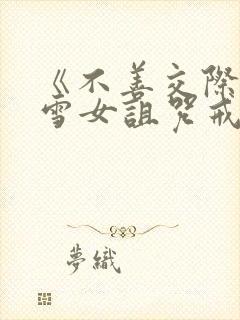 《不善交際
雪女詛咒戒
夢織